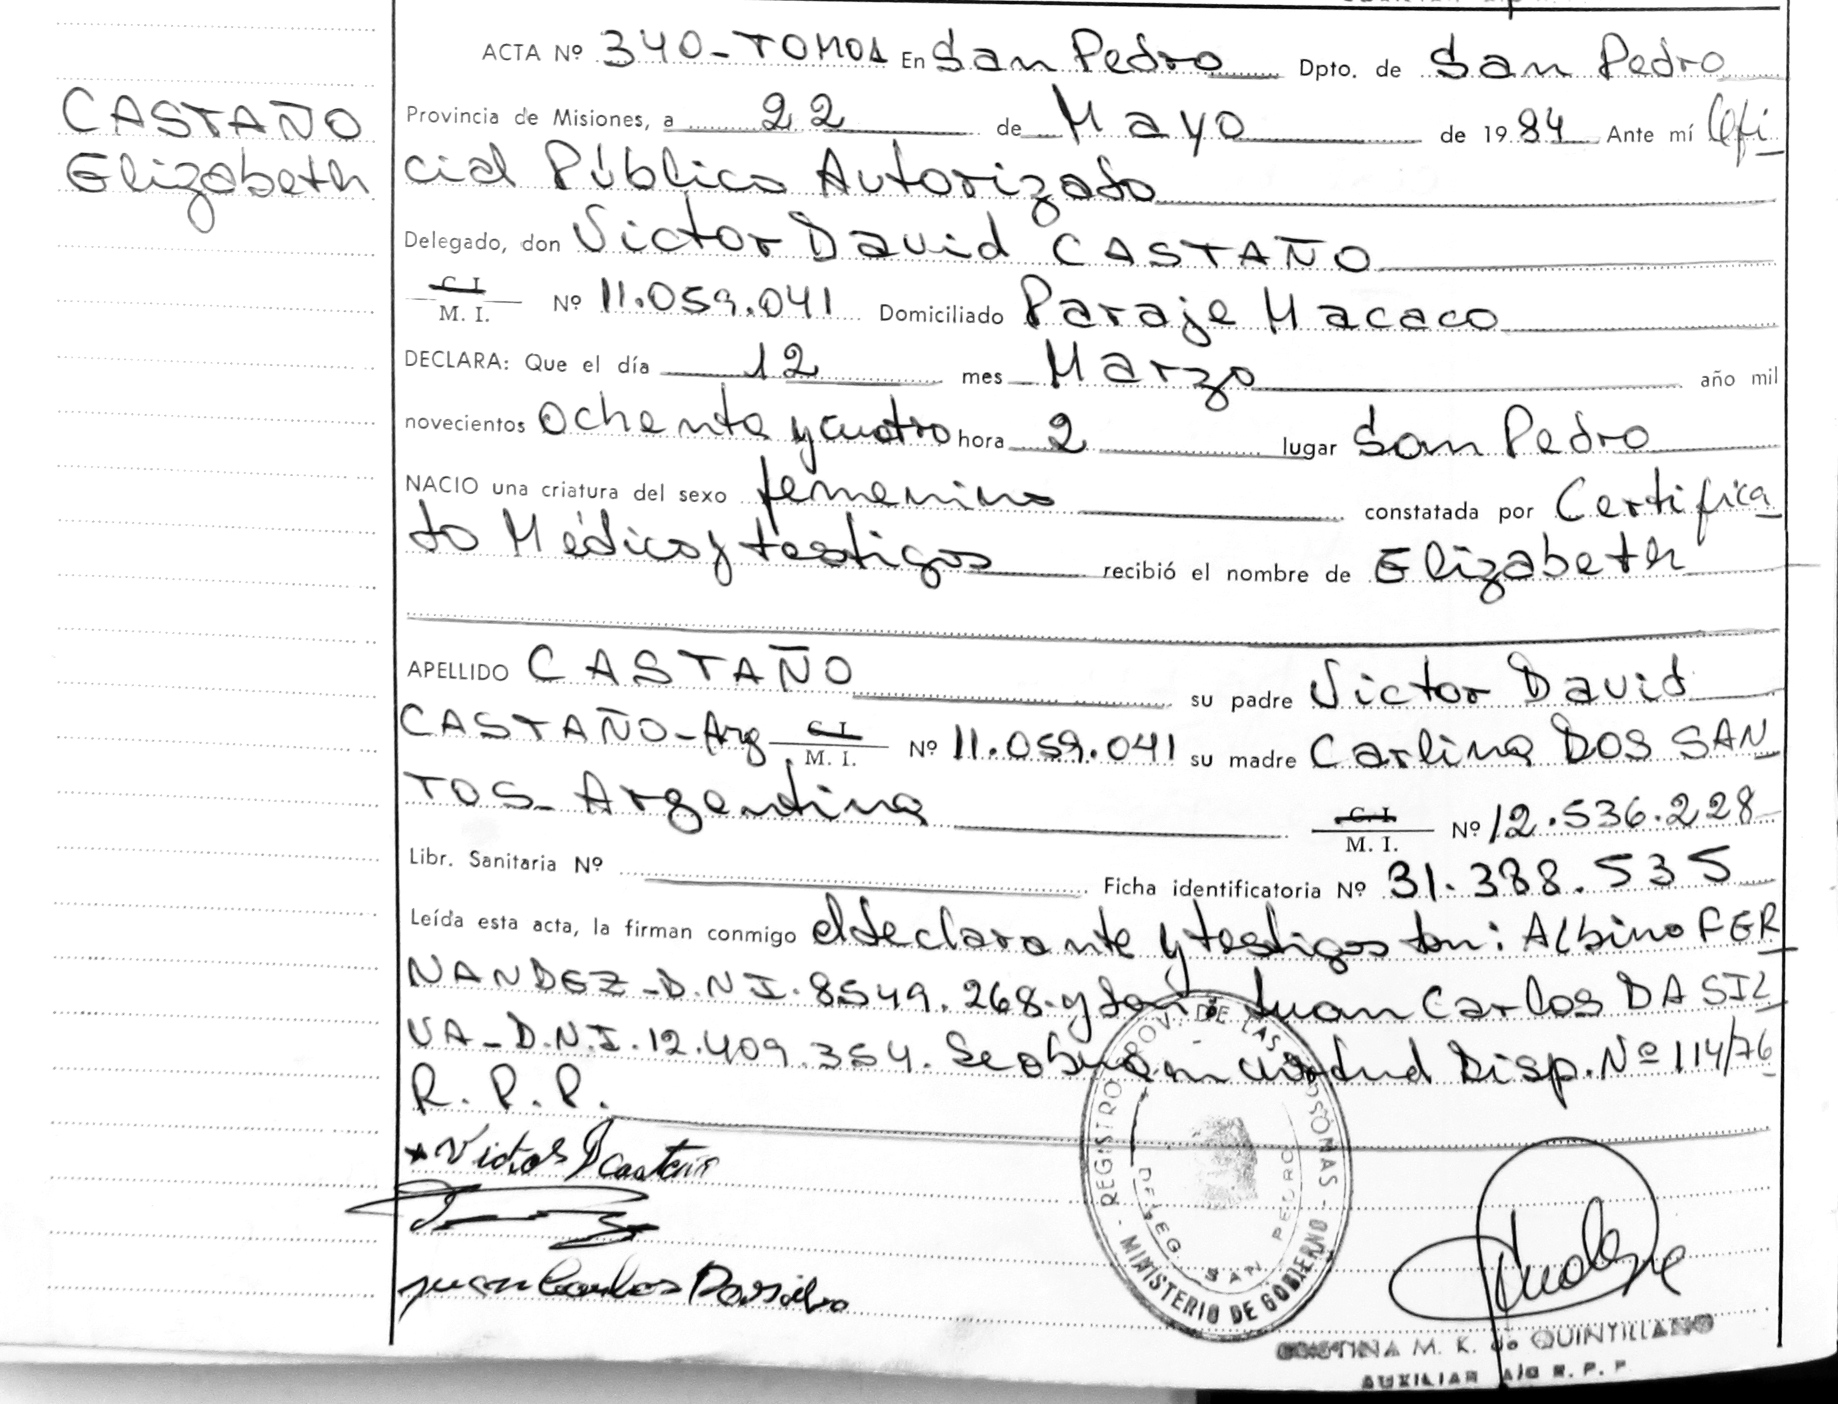 CASTAÑO
Elizabeth
ACTA Nº 340-TOMO1 En San Pedro Dpto. de San Pedro
Provincia de Misiones, a 22 de Mayo de 1984 Ante mí Ofi
cial Público Autorizado
Delegado, don Victor David CASTAÑO
C. I.
M. I. Nº 11.059.041 Domiciliado Paraje Macaco
DECLARA: Que el día 12 mes Marzo año mil
novecientos ochenta y cuatro hora 2 lugar San Pedro
NACIO una criatura del sexo femenino constatada por Certifica
do Médico y testigos recibió el nombre de Elizabeth
APELLIDO CASTAÑO su padre Victor David
CASTAÑO-Arg C. I.
M. I. Nº 11.059.041 su madre Carlina DOS SAN
TOS- Argentina C. I.
M. I. Nº 12.536.228
Libr. Sanitaria Nº Ficha identificatoria Nº 31.388.535
Leída esta acta, la firman conmigo el declarante y testigos Don: Albino FER
NANDEZ-D.N.I. 8549.268- y Don: Juan Carlos DA SIL
VA-D.N.I. 12.409.354. Se obra en Disp. Nº 114/76
R. P. P.
Victor D Castaño
Juan Carlos Dasilva
- REGISTRO PROV. DE LAS PERSONAS -
DELEG. SAN PEDRO
MINISTERIO DE GOBIERNO
CRISTINA M. K. de QUINTILLANO
AUXILIAR A/C R. P. P